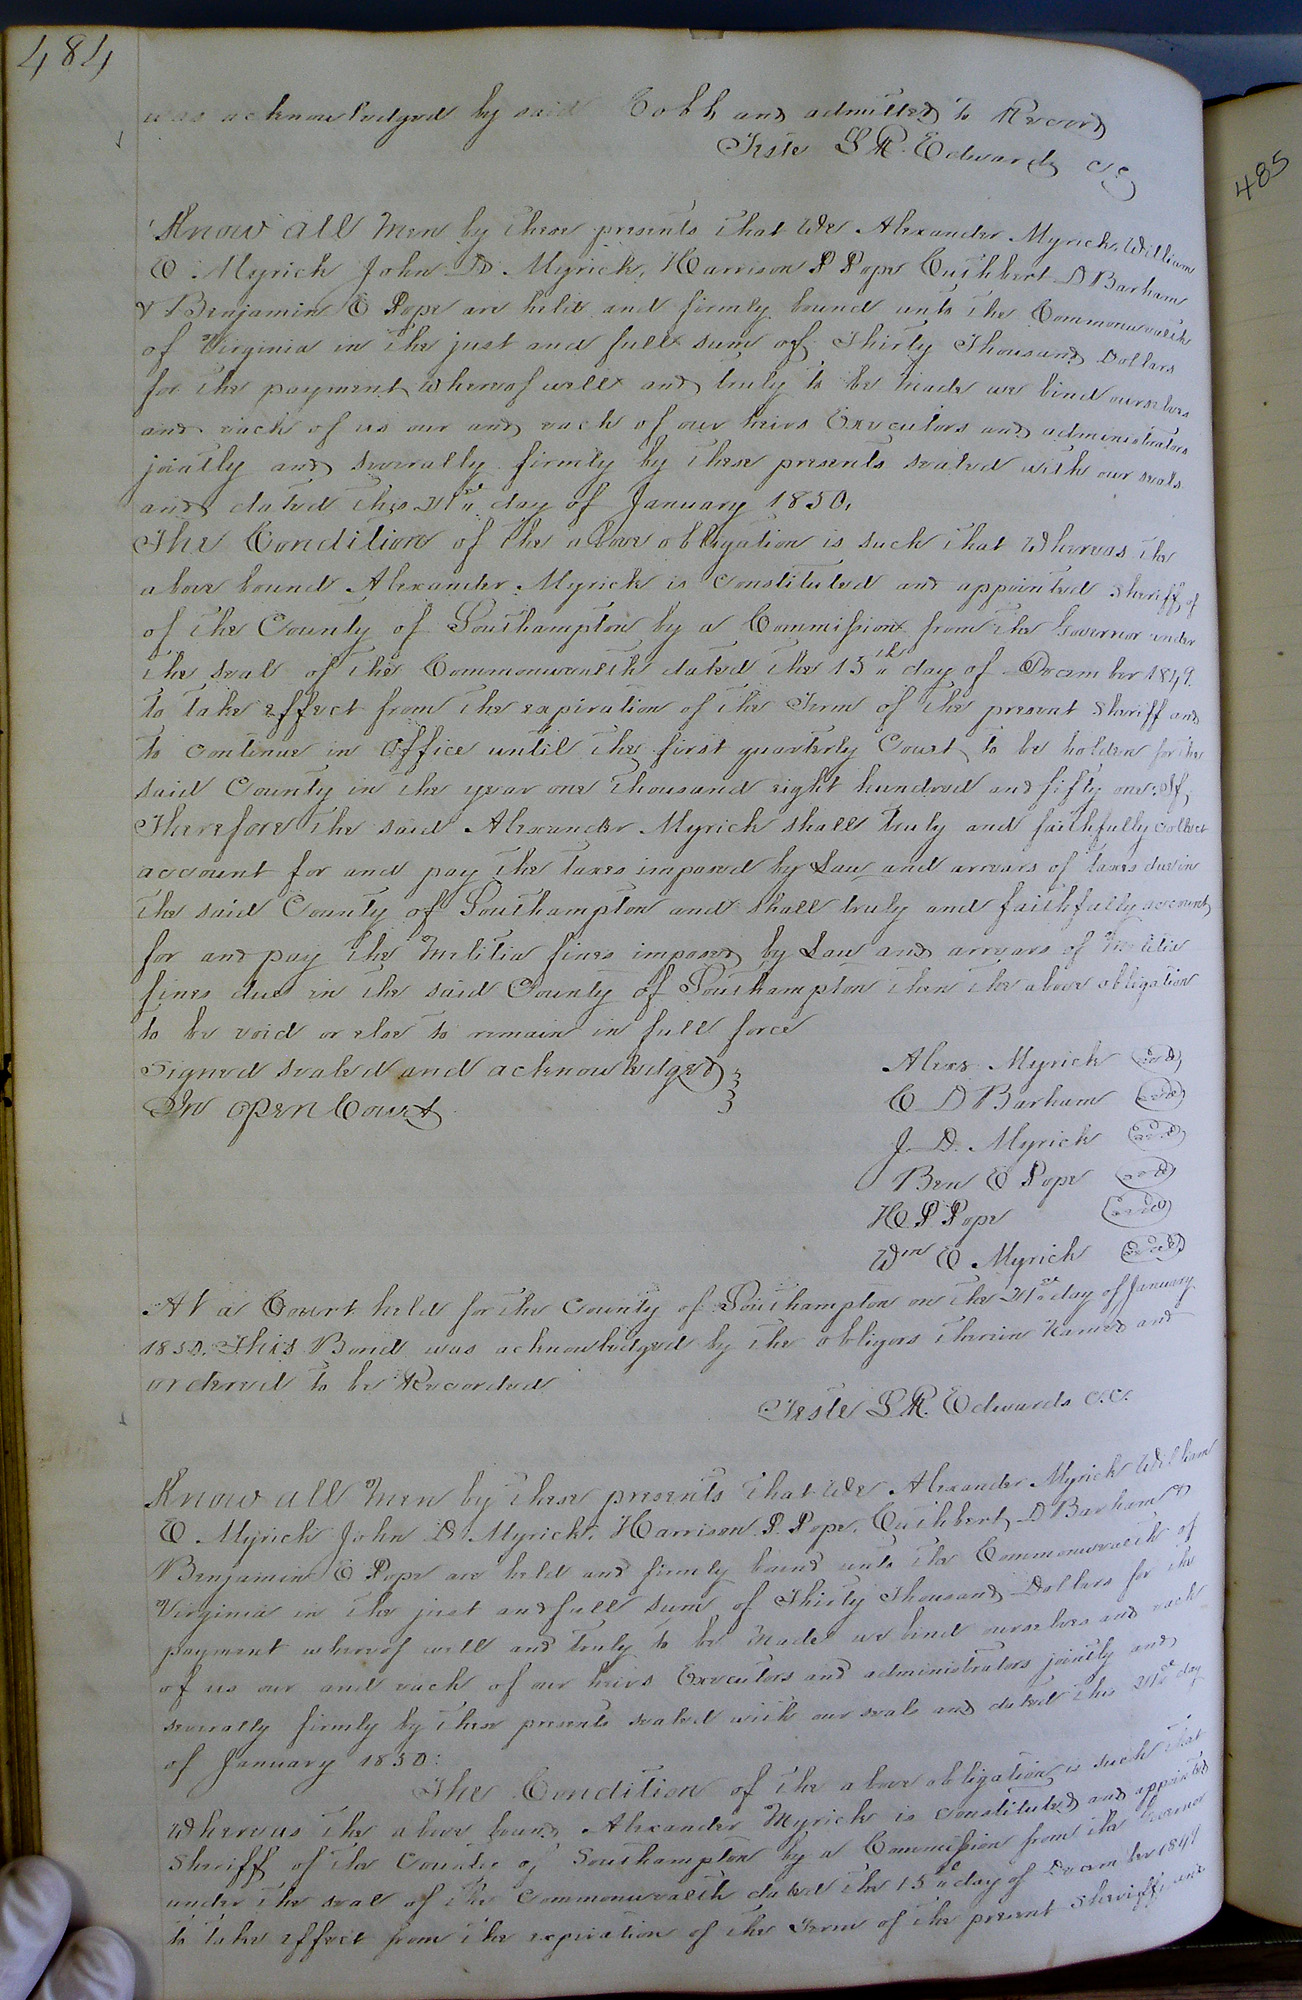 484
was acknowledged by said Cobb and admitted to Record
Teste L R. Edwards c c
485
Know all Men by these presents that We Alexander Myrick, William
E. Myrick John D. Myrick, Harrison P Pope Cuthbert D Barham
& Benjamin E Pope are held and firmly bound unto the Commonwealth
of Virginia in the just and full sum of Thirty Thousand Dollars
for the payment whereof well and truly to be Made we bind ourselves
and each of us our and each of our heirs Executors and administrators
jointly and severally firmly by these presents sealed with our seals
and dated this 21st day of January 1850.
The Condition of the above obligation is such that Whereas the
above bound Alexander Myrick is Constituted and appointed Sheriff of
of the County of Southampton by a Commission from the Governor under
the seal of the Commonwealth dated the 15th day of December 1849.
to take effect from the expiration of the Term of the present Sheriff and
to continue in Office until the first quarterly Court to be holden for the
said County in the year one thousand eight hundred and fifty one: If,
Therefore the said Alexander Myrick shall truly and faithfully collect
account for and pay the taxes imposed by Law and arrears of taxes due in
the said County of Southampton and shall truly and faithfully account
for and pay the Militia fines imposed by Law and arrears of Militia
fines due in the said County of Southampton then the above obligation
to be void or else to remain in full force
Signed sealed and acknowledged
In open Court
Alexr Myrick seal
C D Barham seal
J. D. Myrick seal
Ben E Pope seal
H P Pope seal
Wm E Myrick seal
At a Court held for the County of Southampton on the 21st day of January
1850. This Bond was acknowledged by the obligors therein Named and
ordered to be Recorded
Teste L R. Edwards c.c.
Know all Men by these presents that We Alexander Myrick William
E Myrick John D Myrick, Harrison P. Pope, Cuthbert D Barham &
Benjamin E Pope are held and firmly bound unto the Commonwealth of
Virginia in the just and full sum of Thirty Thousand Dollars for the
payment whereof well and truly to be Made we bind ourselves and each
of us our and each of our heirs Executors and administrators jointly and
severally firmly by these presents sealed with our seals and dated this 21st day
of January 1850:
The Condition of the above obligation is such that
Whereas the above bound Alexander Myrick is Constituted and appointed
Sheriff of the County of Southampton by a Commission from the Governor
under the seal of the Commonwealth dated the 15th day of December 1849
to take effect from the expiration of the Term of the present Sheriff, and